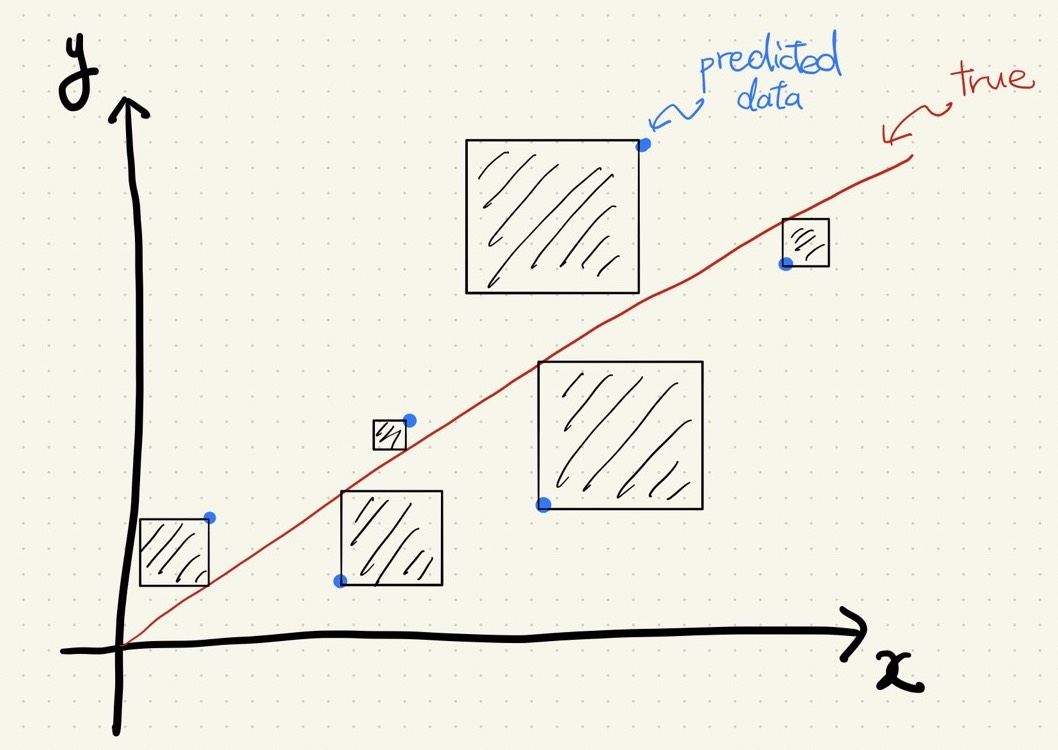 y
predicted
data
true
x